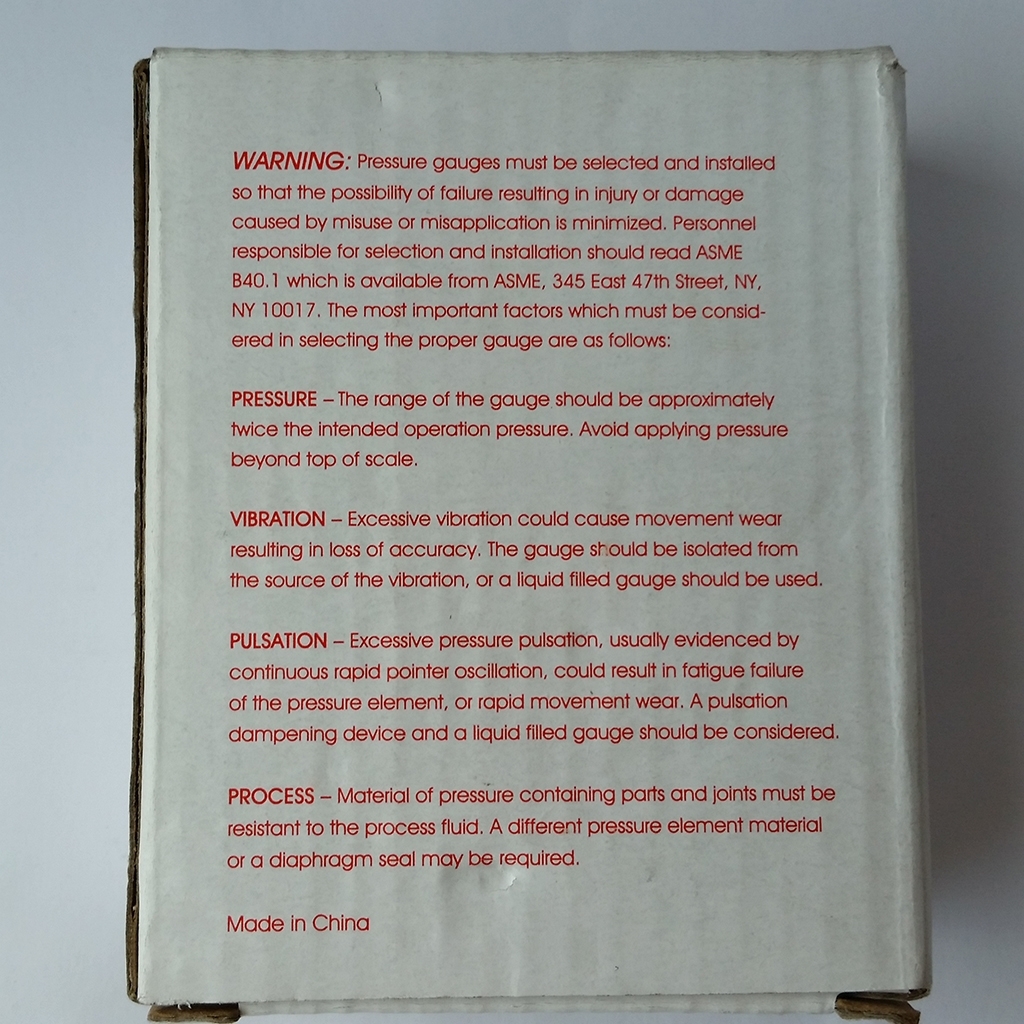 WARNING: Pressure gauges must be selected and installed
so that the possibility of failure resulting in injury or damage
caused by misuse or misapplication is minimized. Personnel
responsible for selection and installation should read ASME
B40.1 which is available from ASME, 345 East 47th Street, NY,
NY 10017. The most important factors which must be consid-
ered in selecting the proper gauge are as follows:
PRESSURE – The range of the gauge should be approximately
twice the intended operation pressure. Avoid applying pressure
beyond top of scale.
VIBRATION – Excessive vibration could cause movement wear
resulting in loss of accuracy. The gauge should be isolated from
the source of the vibration, or a liquid filled gauge should be used.
PULSATION – Excessive pressure pulsation, usually evidenced by
continuous rapid pointer oscillation, could result in fatigue failure
of the pressure element, or rapid movement wear. A pulsation
dampening device and a liquid filled gauge should be considered.
PROCESS – Material of pressure containing parts and joints must be
resistant to the process fluid. A different pressure element material
or a diaphragm seal may be required.
Made in China